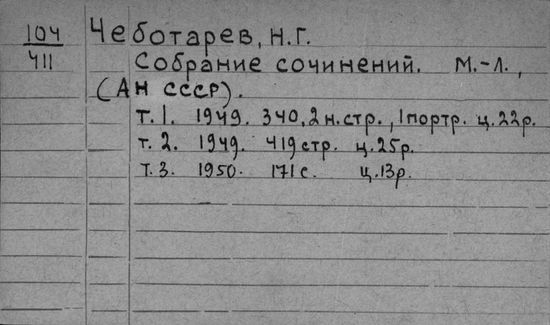 104
411
Чеботарев, Н.Г.
Собрание сочинений. М.-Л.,
(АН СССР).
Т.1. 1949. 340, 2 н.стр., 1 портр. ц.22р.
т.2. 1949. 419 стр. ц.25р.
т.3. 1950. 171 с. ц.13р.